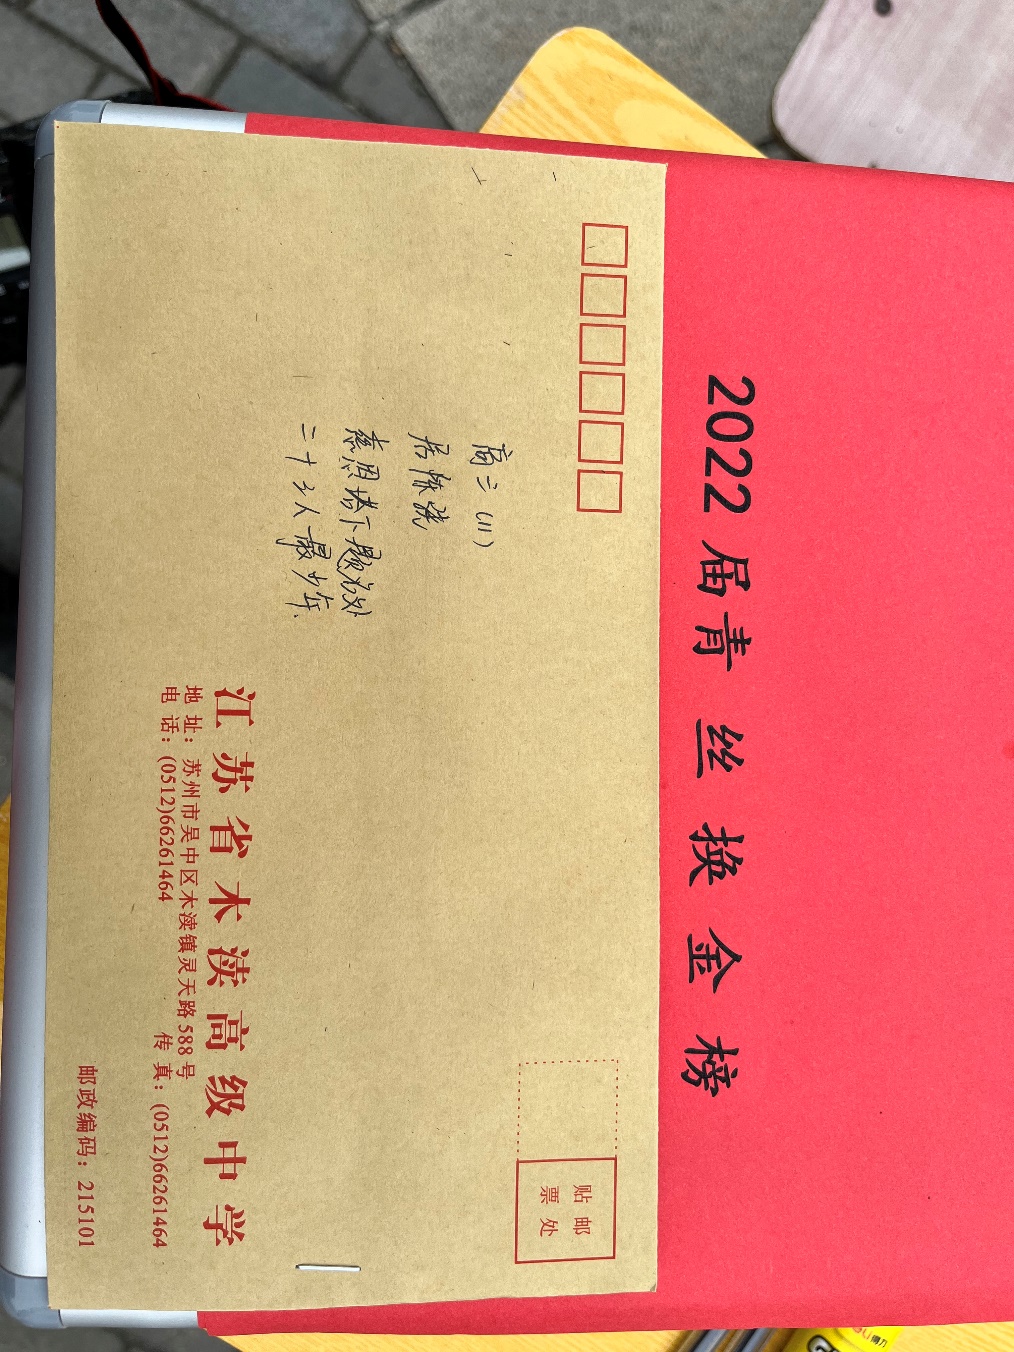 2022届青丝换金榜
贴邮
票处
高三(11)
慈恩塔下题名处
二十七人最少年
江苏省木渎高级中学
地址：苏州市吴中区木渎镇灵天路588号
电话：(0512)66261464 传真：(0512)66261464
邮政编码：215101